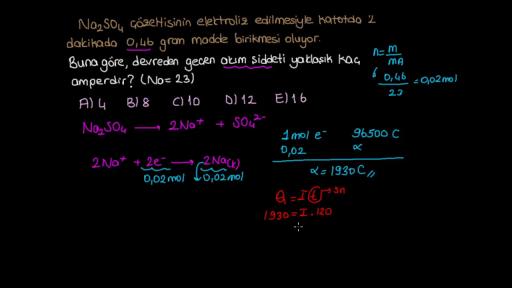 Na₂SO₄ çözeltisinin elektroliz edilmesiyle katotda 2
dakikada 0,46 gram madde birikmesi oluyor.
Buna göre, devreden geçen akım şiddeti yaklaşık kaç
amperdir? (Na = 23)
A) 4 B) 8 C) 10 D) 12 E) 16
n = m/MA
0,46/23 = 0,02 mol
Na₂SO₄ → 2Na⁺ + SO₄²⁻
2Na⁺ + 2e⁻ → 2Na(k)
0,02 mol 0,02 mol
1 mol e⁻ 96500 C
0,02 α
α = 1930 C
Q = I t → sn
1930 = I . 120